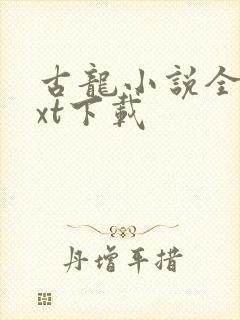 古龍小説全
xt下載
丹增平措